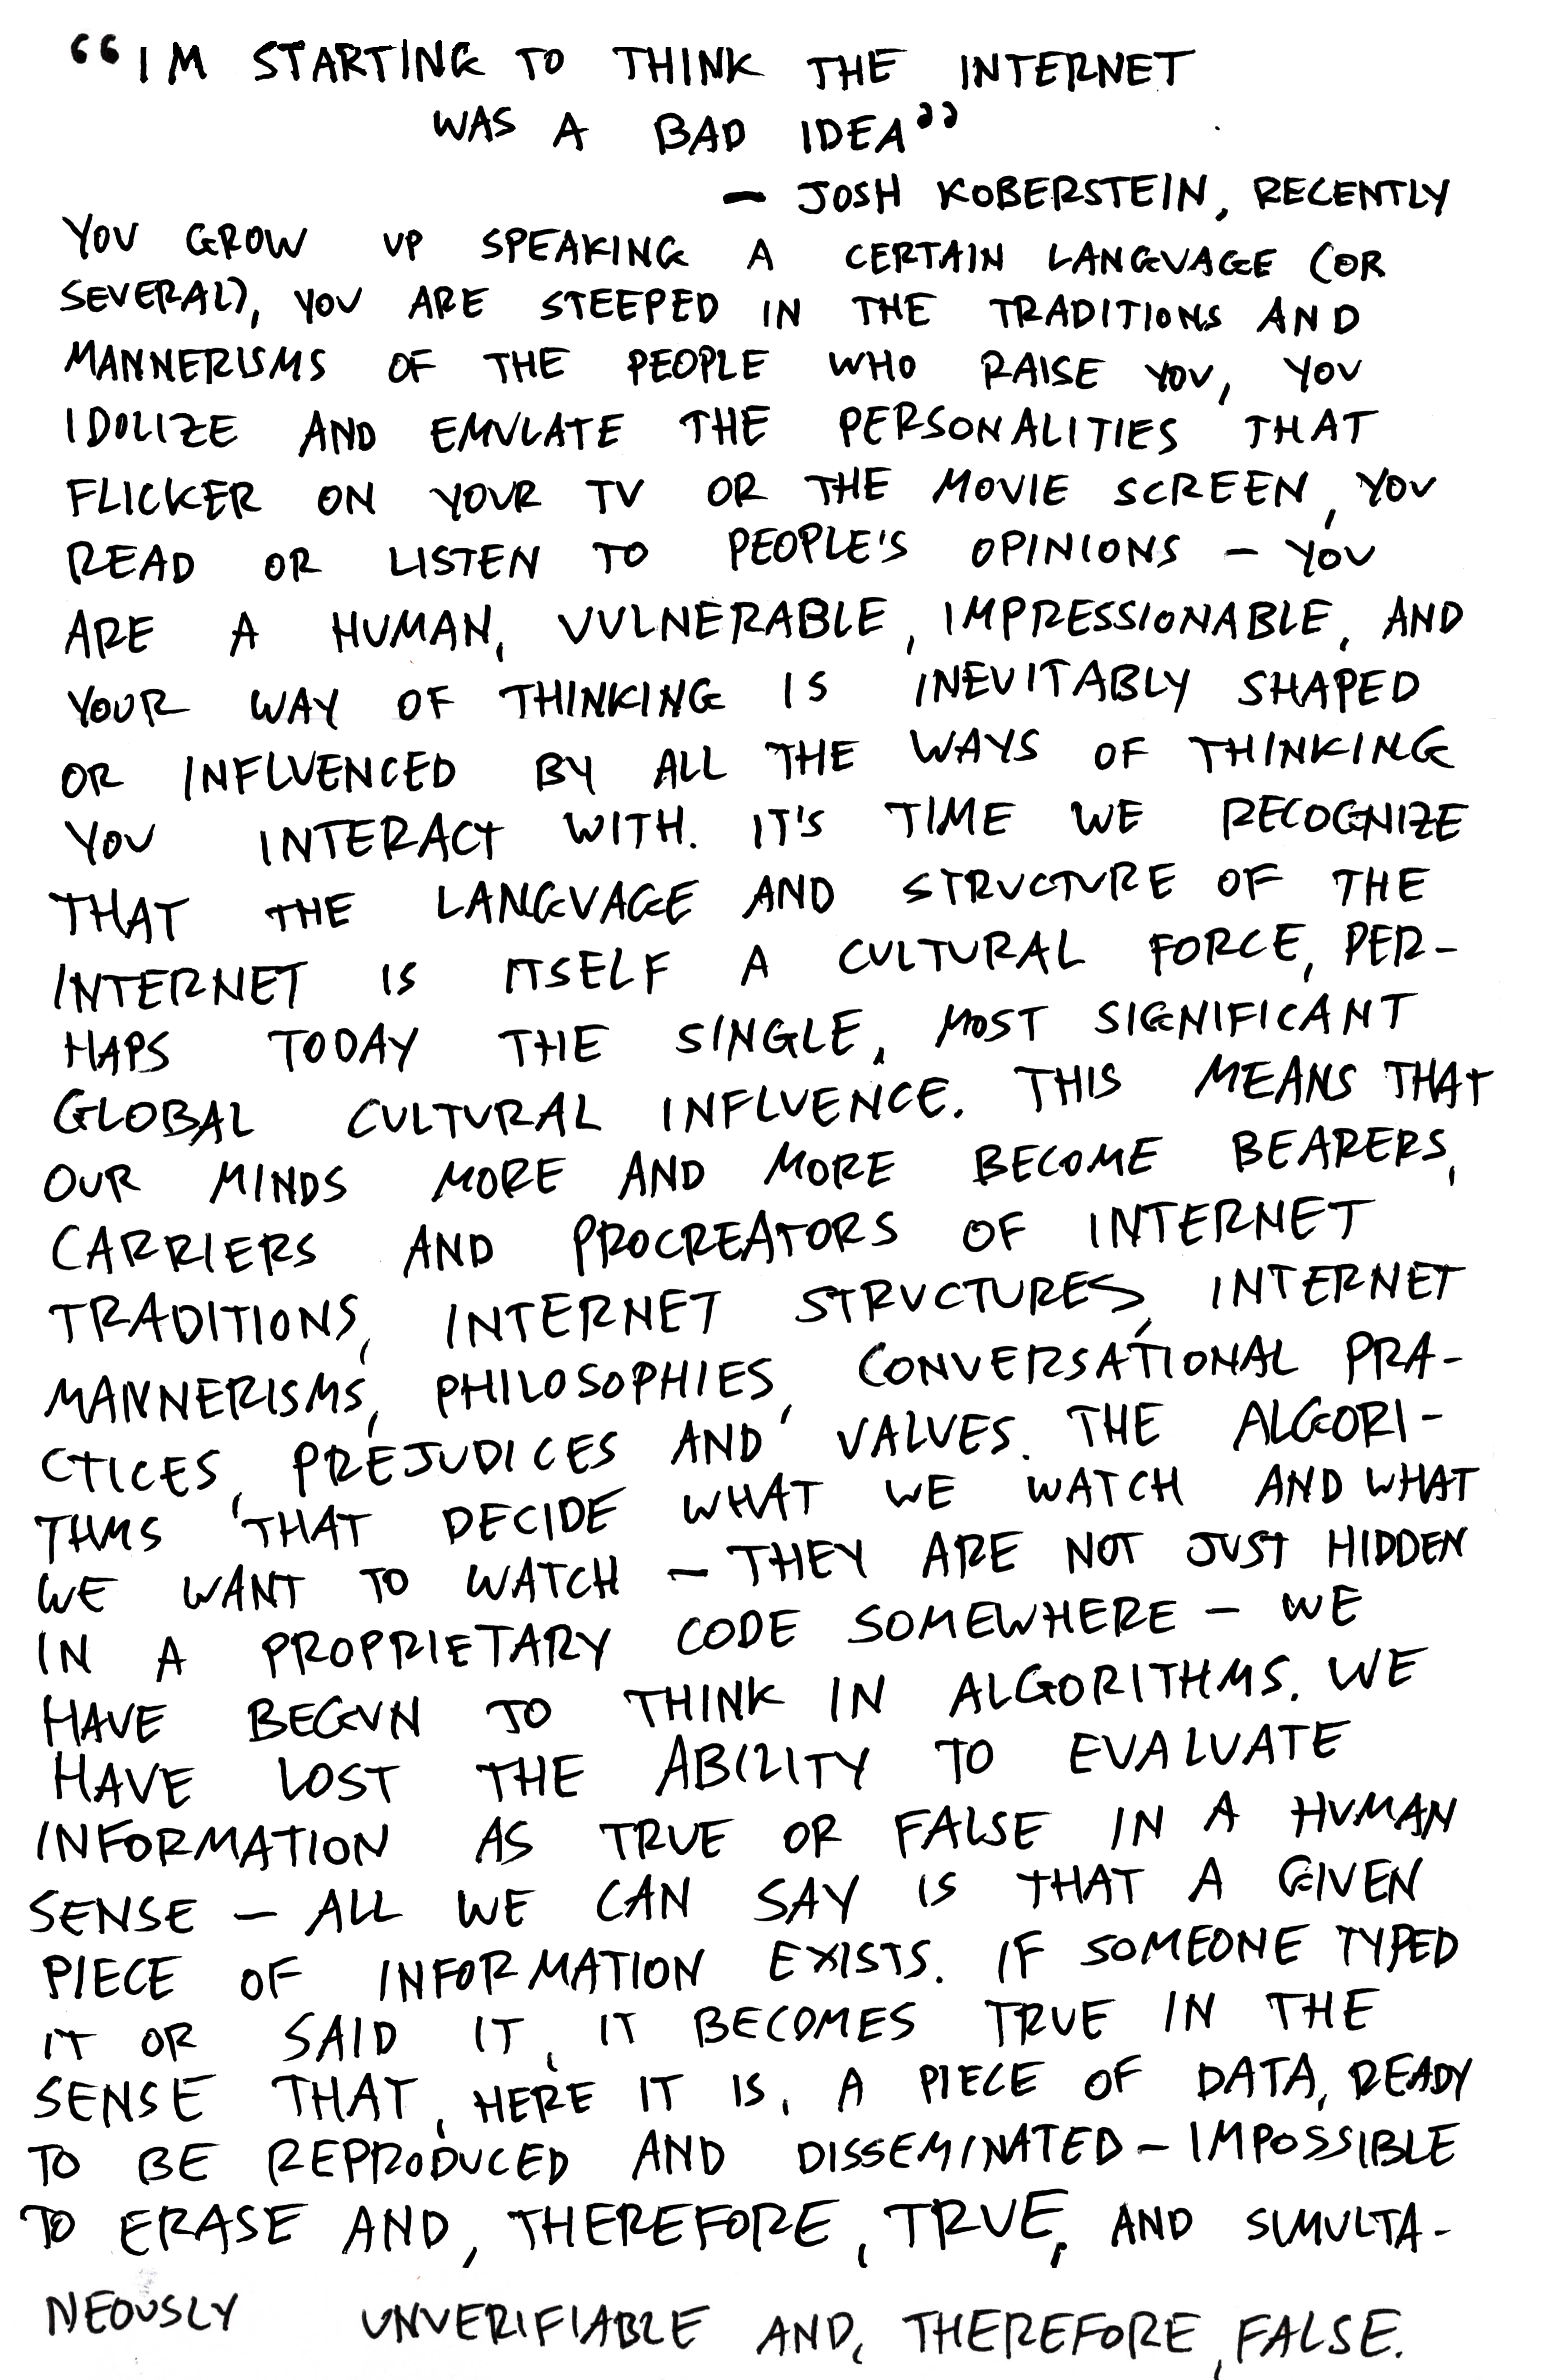 “IM STARTING TO THINK THE INTERNET
WAS A BAD IDEA”
— JOSH KOBERSTEIN, RECENTLY
YOU GROW UP SPEAKING A CERTAIN LANGUAGE (OR
SEVERAL), YOU ARE STEEPED IN THE TRADITIONS AND
MANNERISMS OF THE PEOPLE WHO RAISE YOU, YOU
IDOLIZE AND EMULATE THE PERSONALITIES THAT
FLICKER ON YOUR TV OR THE MOVIE SCREEN, YOU
READ OR LISTEN TO PEOPLE'S OPINIONS — YOU
ARE A HUMAN, VULNERABLE, IMPRESSIONABLE, AND
YOUR WAY OF THINKING IS INEVITABLY SHAPED
OR INFLUENCED BY ALL THE WAYS OF THINKING
YOU INTERACT WITH. IT'S TIME WE RECOGNIZE
THAT THE LANGUAGE AND STRUCTURE OF THE
INTERNET IS ITSELF A CULTURAL FORCE, PER-
HAPS TODAY THE SINGLE, MOST SIGNIFICANT
GLOBAL CULTURAL INFLUENCE. THIS MEANS THAT
OUR MINDS MORE AND MORE BECOME BEARERS,
CARRIERS AND PROCREATORS OF INTERNET
TRADITIONS, INTERNET STRUCTURES, INTERNET
MANNERISMS, PHILOSOPHIES, CONVERSATIONAL PRA-
CTICES, PREJUDICES AND VALUES. THE ALGORI-
THMS THAT DECIDE WHAT WE WATCH AND WHAT
WE WANT TO WATCH — THEY ARE NOT JUST HIDDEN
IN A PROPRIETARY CODE SOMEWHERE — WE
HAVE BEGUN TO THINK IN ALGORITHMS. WE
HAVE LOST THE ABILITY TO EVALUATE
INFORMATION AS TRUE OR FALSE IN A HUMAN
SENSE — ALL WE CAN SAY IS THAT A GIVEN
PIECE OF INFORMATION EXISTS. IF SOMEONE TYPED
IT OR SAID IT, IT BECOMES TRUE IN THE
SENSE THAT, HERE IT IS, A PIECE OF DATA, READY
TO BE REPRODUCED AND DISSEMINATED — IMPOSSIBLE
TO ERASE AND, THEREFORE, TRUE, AND SIMULTA-
NEOUSLY UNVERIFIABLE AND, THEREFORE, FALSE.